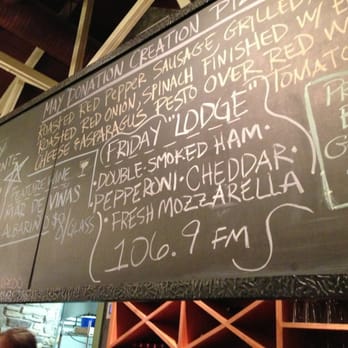 MAY DONATION CREATION
ROASTED RED PEPPER SAUSAGE, GRILLED
ROASTED RED ONION, SPINACH FINISHED W/
CHEESE & ASPARAGUS PESTO OVER RED
TOMATO
FRIDAY "LODGE"
• DOUBLE-SMOKED HAM •
PEPPERONI • CHEDDAR •
• FRESH MOZZARELLA
106.9 FM
FEATURE WINE
MAR DE VINAS
ALBARINO
GLASS